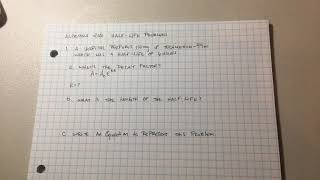 ALGEBRA 2 HALF-LIFE PROBLEM
1. A HOSPITAL PREPARES 100mg OF TECHNETIUM-99m
WHICH HAS A HALF-LIFE OF 6 HOURS
a. WHAT'S THE DECAY FACTOR?
A = A₀e^kt
k=?
b. WHAT IS THE LENGTH OF THE HALF-LIFE?
C. WRITE AN EQUATION TO REPRESENT THIS PROBLEM